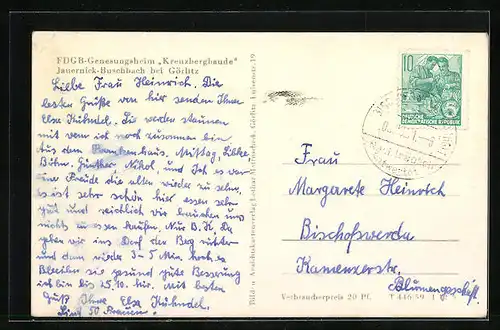 FDGB-Genesungsheim „Kreuzbergbaude“
Jauernick-Buschbach bei Görlitz
Liebe Frau Heinrich. Die
besten Grüße von hier senden Ihnen
Elsa Kühndel. Zu werden staunen
mit wem ich noch zusammen bin
aus dem Krankenhaus. Mittag, Libke,
Böhm. Günther Nikol, und Ich es war
eine Freude die alten wieder zu sehn,
es ist sehr schön hier essen sehr
gut und reichlich wir brauchen uns
nichts zu essen kaufen. Nur B. H. Da
gehen wir ins Dorf den Berg runter
und dann wieder 3-5 Min. hoch es
Bleiben sie gesund gute Besserung
ich bin bis 25.10. hier. Mit besten
Gruß Ihre Elsa Kühndel.
Sind 50 Frauen.
Bild- u. Ansichtskartenverlag
Görlitz
10
DEUTSCHE
DEMOKRATISCHE REPUBLIK
Frau
Margarete Heinrich
Bischofswerda
Kamenzerstr.
Blumengeschäft.
Verbraucherpreis 20 Pf.
T 446/59